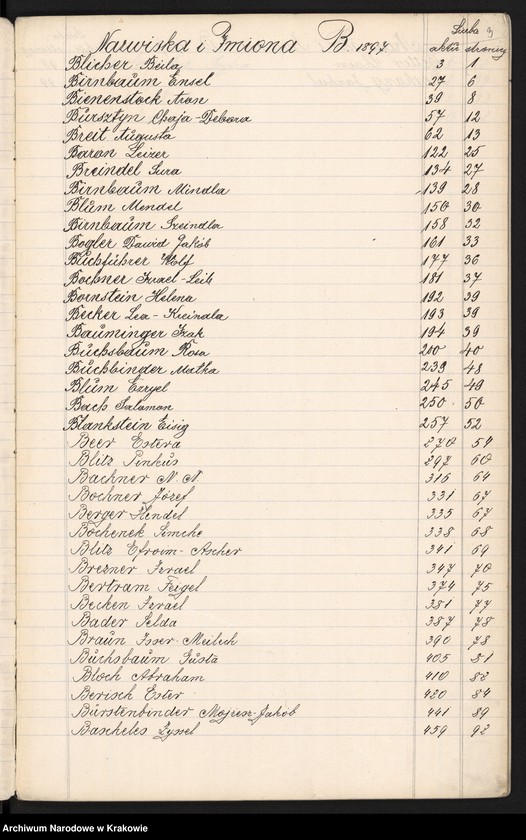 Liczba
Nazwiska i Imiona B 1897 aktu strony
Blicher Beila 3 1
Birnbaum Ensel 27 6
Bienenstock Aron 39 8
Bursztyn Chaja-Debora 57 12
Breit Augusta 62 13
Baran Leizer 122 25
Breindel Sura 134 27
Birnbaum Mindla 139 28
Blum Mendel 150 30
Birnbaum Szeindla 158 32
Bogler Dawid Jakób 161 33
Buchführer Wolf 177 36
Bochner Izrael-Leib 181 37
Bornstein Helena 192 39
Becker Lea- 193 39
Bauminger Izak 194 39
Buchsbaum Rosa 200 40
Buchbinder Matka 239 48
Blum Ezryel 245 49
Bach Salamon 250 50
Blankstein Eisig 257 52
Beer Estera 270 54
Blitz Pinkus 297 60
Bachner N. N. 316 64
Bochner Józef 331 67
Berger Hendel 335 67
Bochenek Simche 338 68
Blitz Efroim-Ascher 341 69
Brezner Izrael 347 70
Bertram Feigel 374 75
Becken Izrael 381 77
Bader Selda 387 78
Braun Isser-Meilech 390 78
Buchsbaum Gusta 405 81
Bloch Abraham 410 82
Berisch Ester 420 84
Bürstenbinder Mojzesz-Jakób 441 89
Bascheles 459 92
Archiwum Narodowe w Krakowie